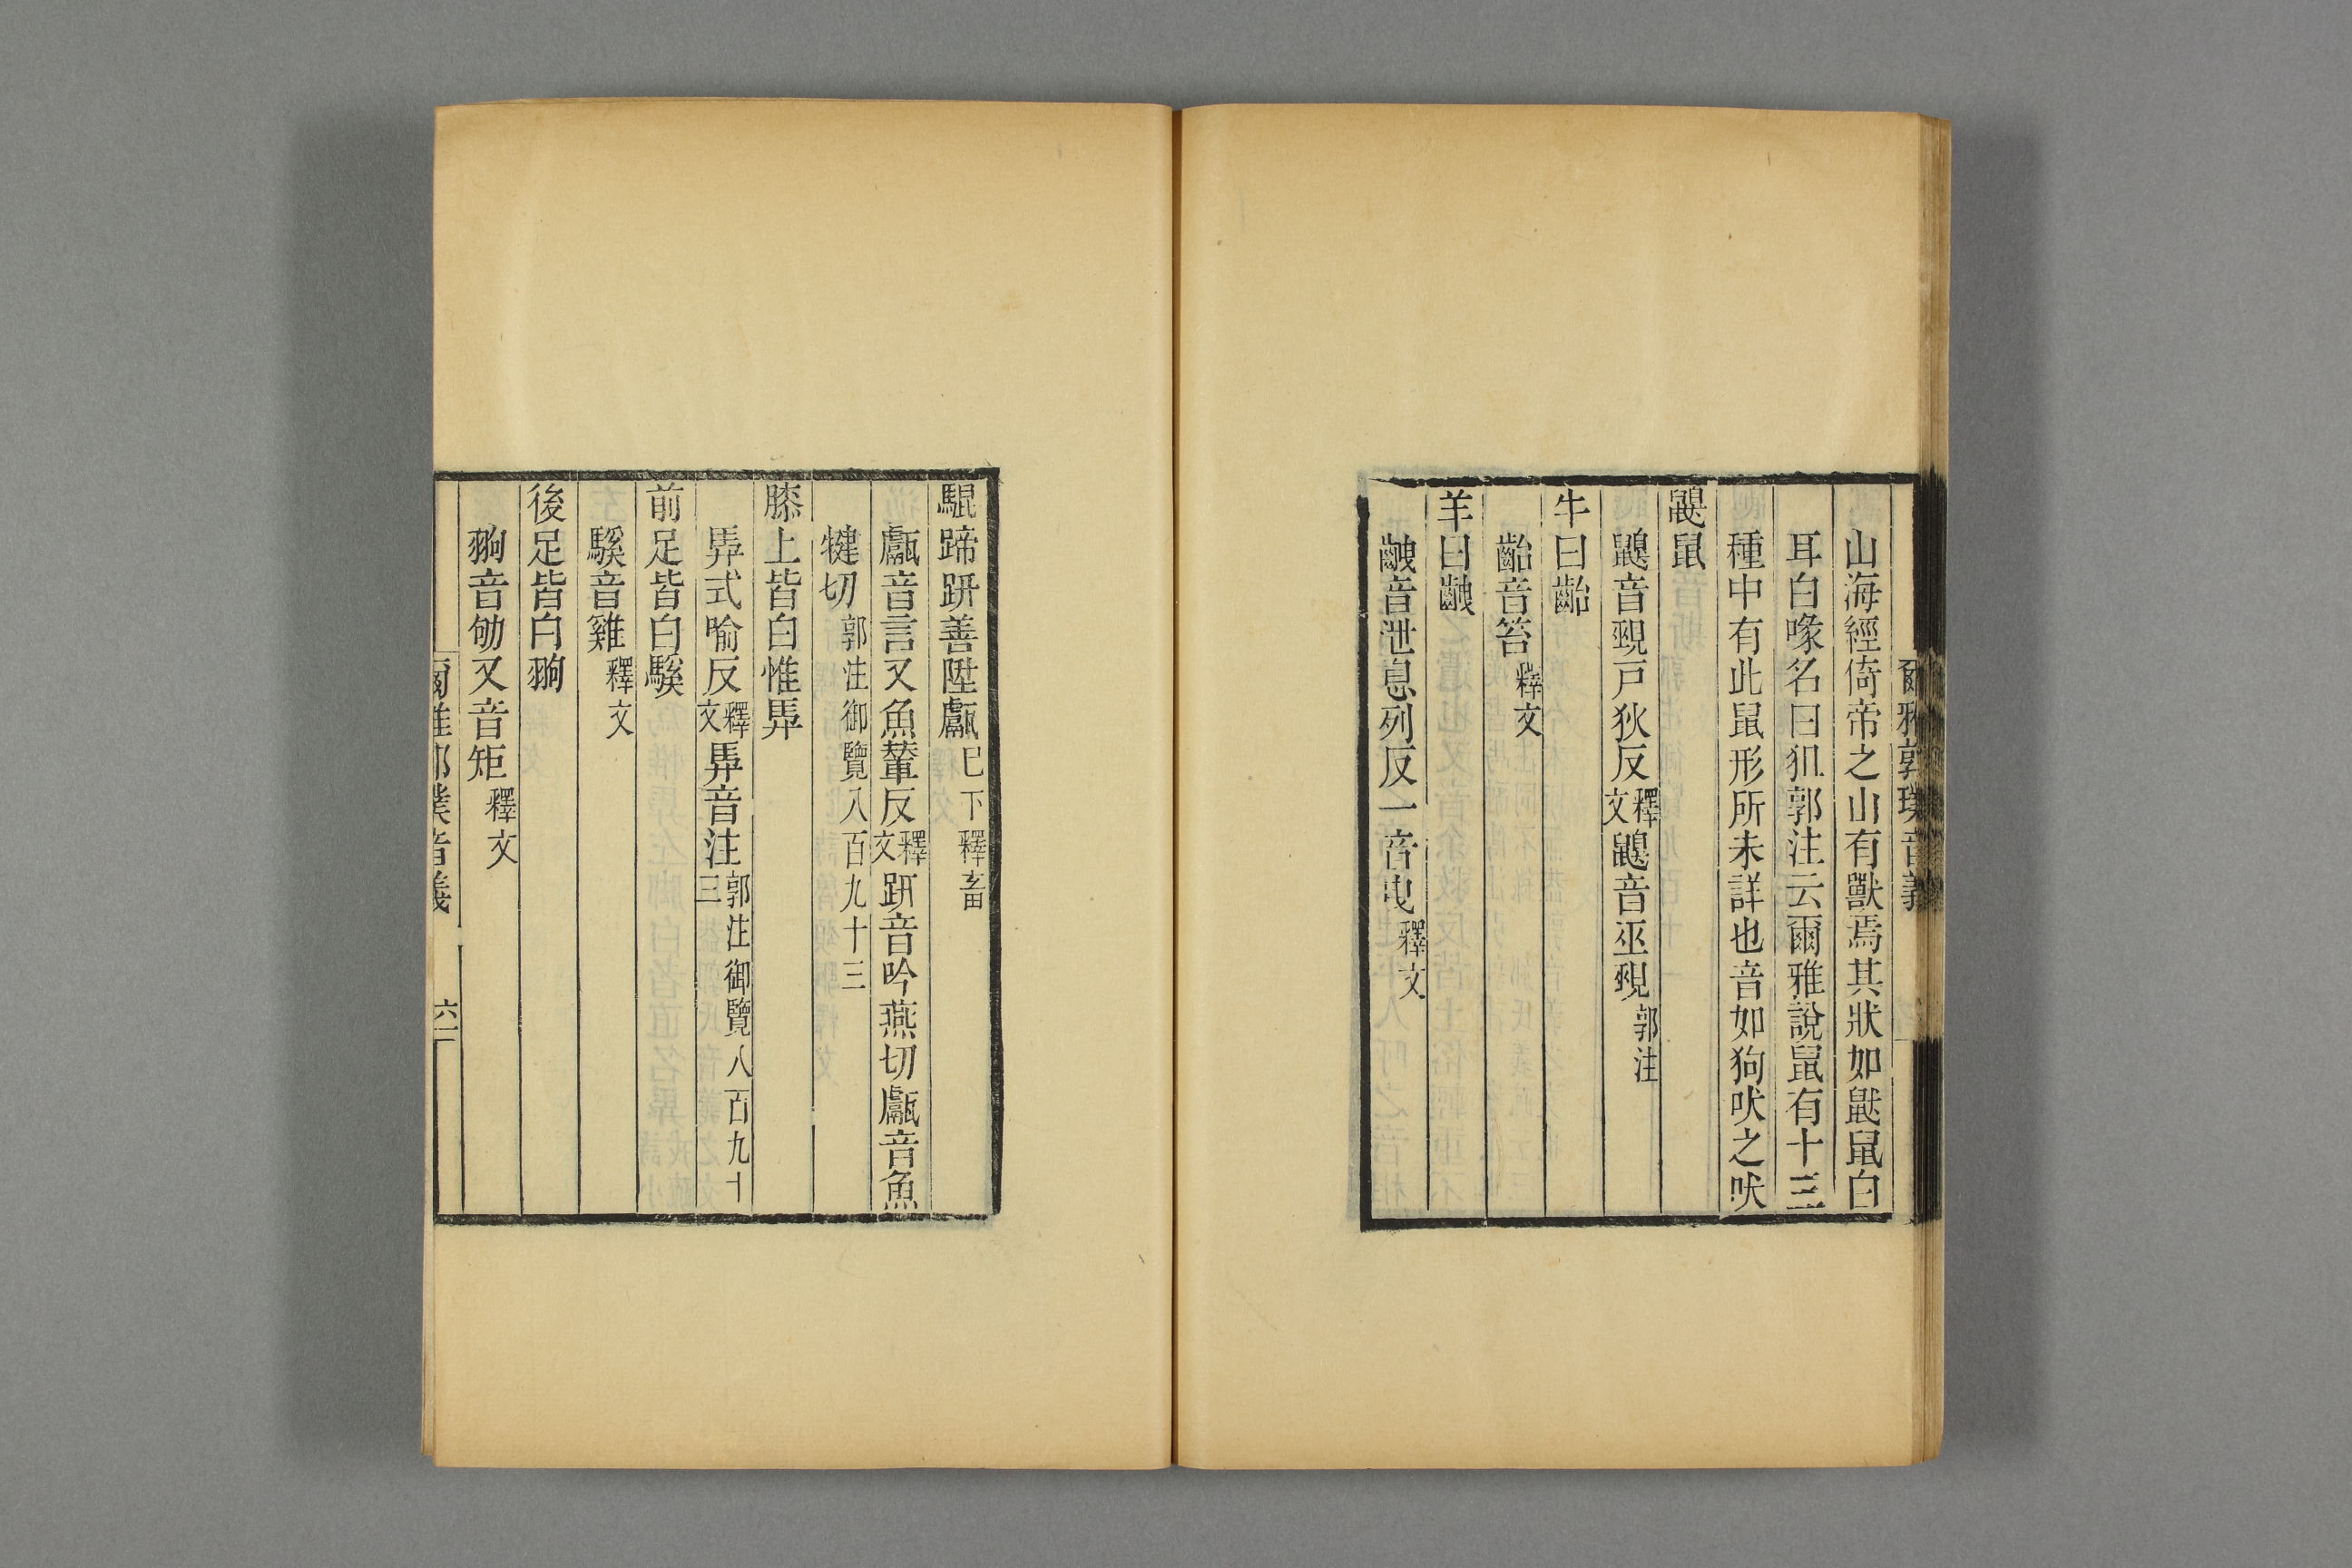 爾雅郭璞音義
山海經倚帝之山有獸焉其狀如鼣鼠白
耳白喙名曰狙郭注云爾雅說鼠有十三
種中有此鼠形所未詳也音如狗吠之吠
鼳鼠
鼳音覡戶狄反釋文鼳音巫覡郭注
牛曰齝
齝音笞釋文
羊曰齥
齥音泄息列反一音曳釋文
騉蹄趼善陞甗已下釋畜
甗音言又魚輦反釋文趼音吟燕切甗音魚
犍切郭注御覽八百九十三
膝上皆白惟馵
馵式喻反釋文馵音注郭注御覽八百九十三
前足皆白騱
騱音雞釋文
後足皆白翑
翑音劬又音矩釋文
爾雅郭璞音義 六二